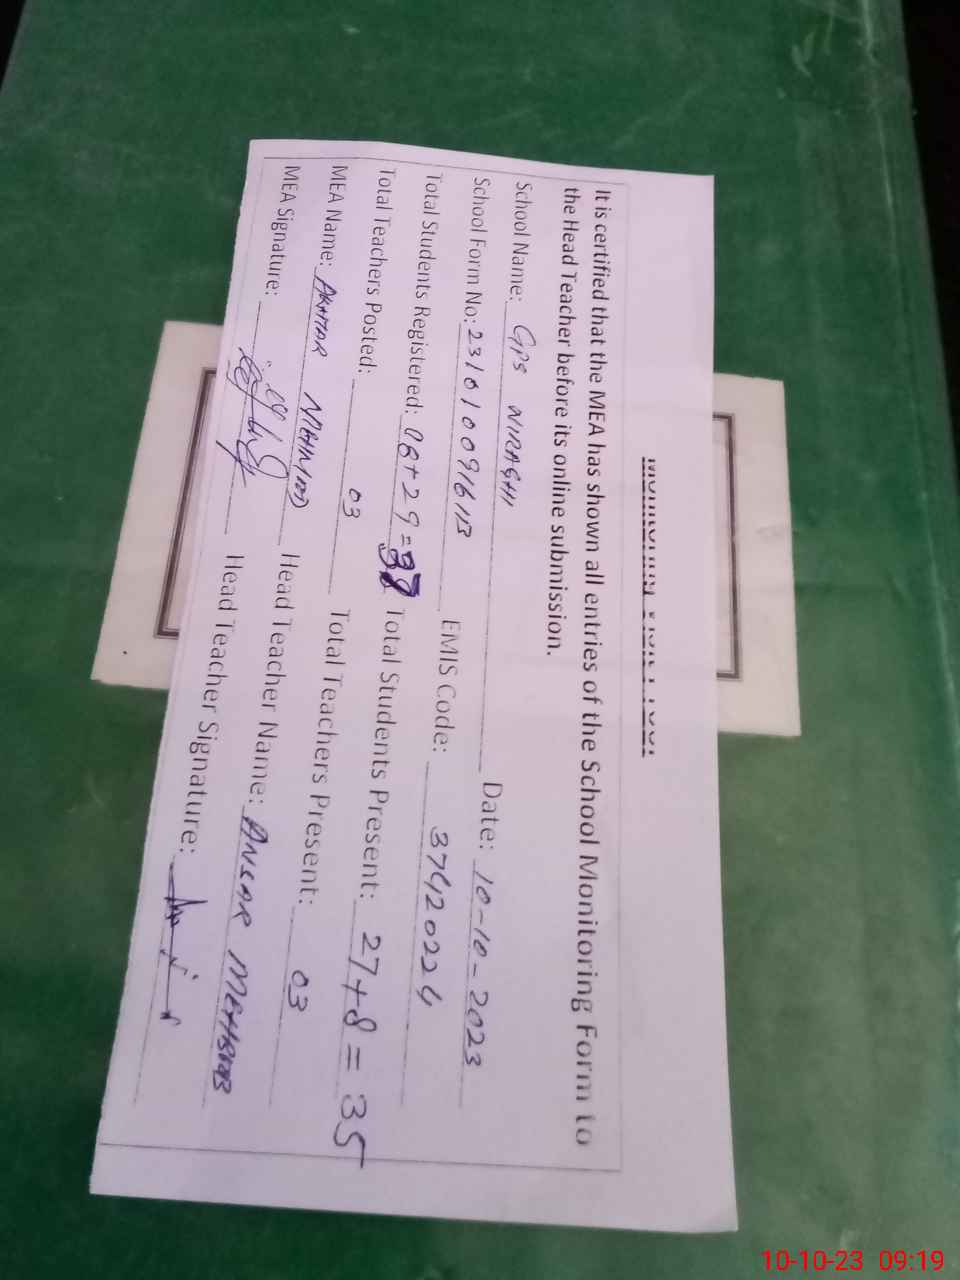 Monitoring Visit Proof
It is certified that the MEA has shown all entries of the School Monitoring Form to
the Head Teacher before its online submission.
School Name: GPS NIRAGHI Date: 10-10-2023
School Form No: 231010091611B EMIS Code: 37420224
Total Students Registered: 08+29= Total Students Present: 27+8=35
Total Teachers Posted: 03 Total Teachers Present: 03
MEA Name: AKHTAR MEHMOOD Head Teacher Name: ANSAR MEHBOOB
MEA Signature: Head Teacher Signature:
10-10-23 09:19